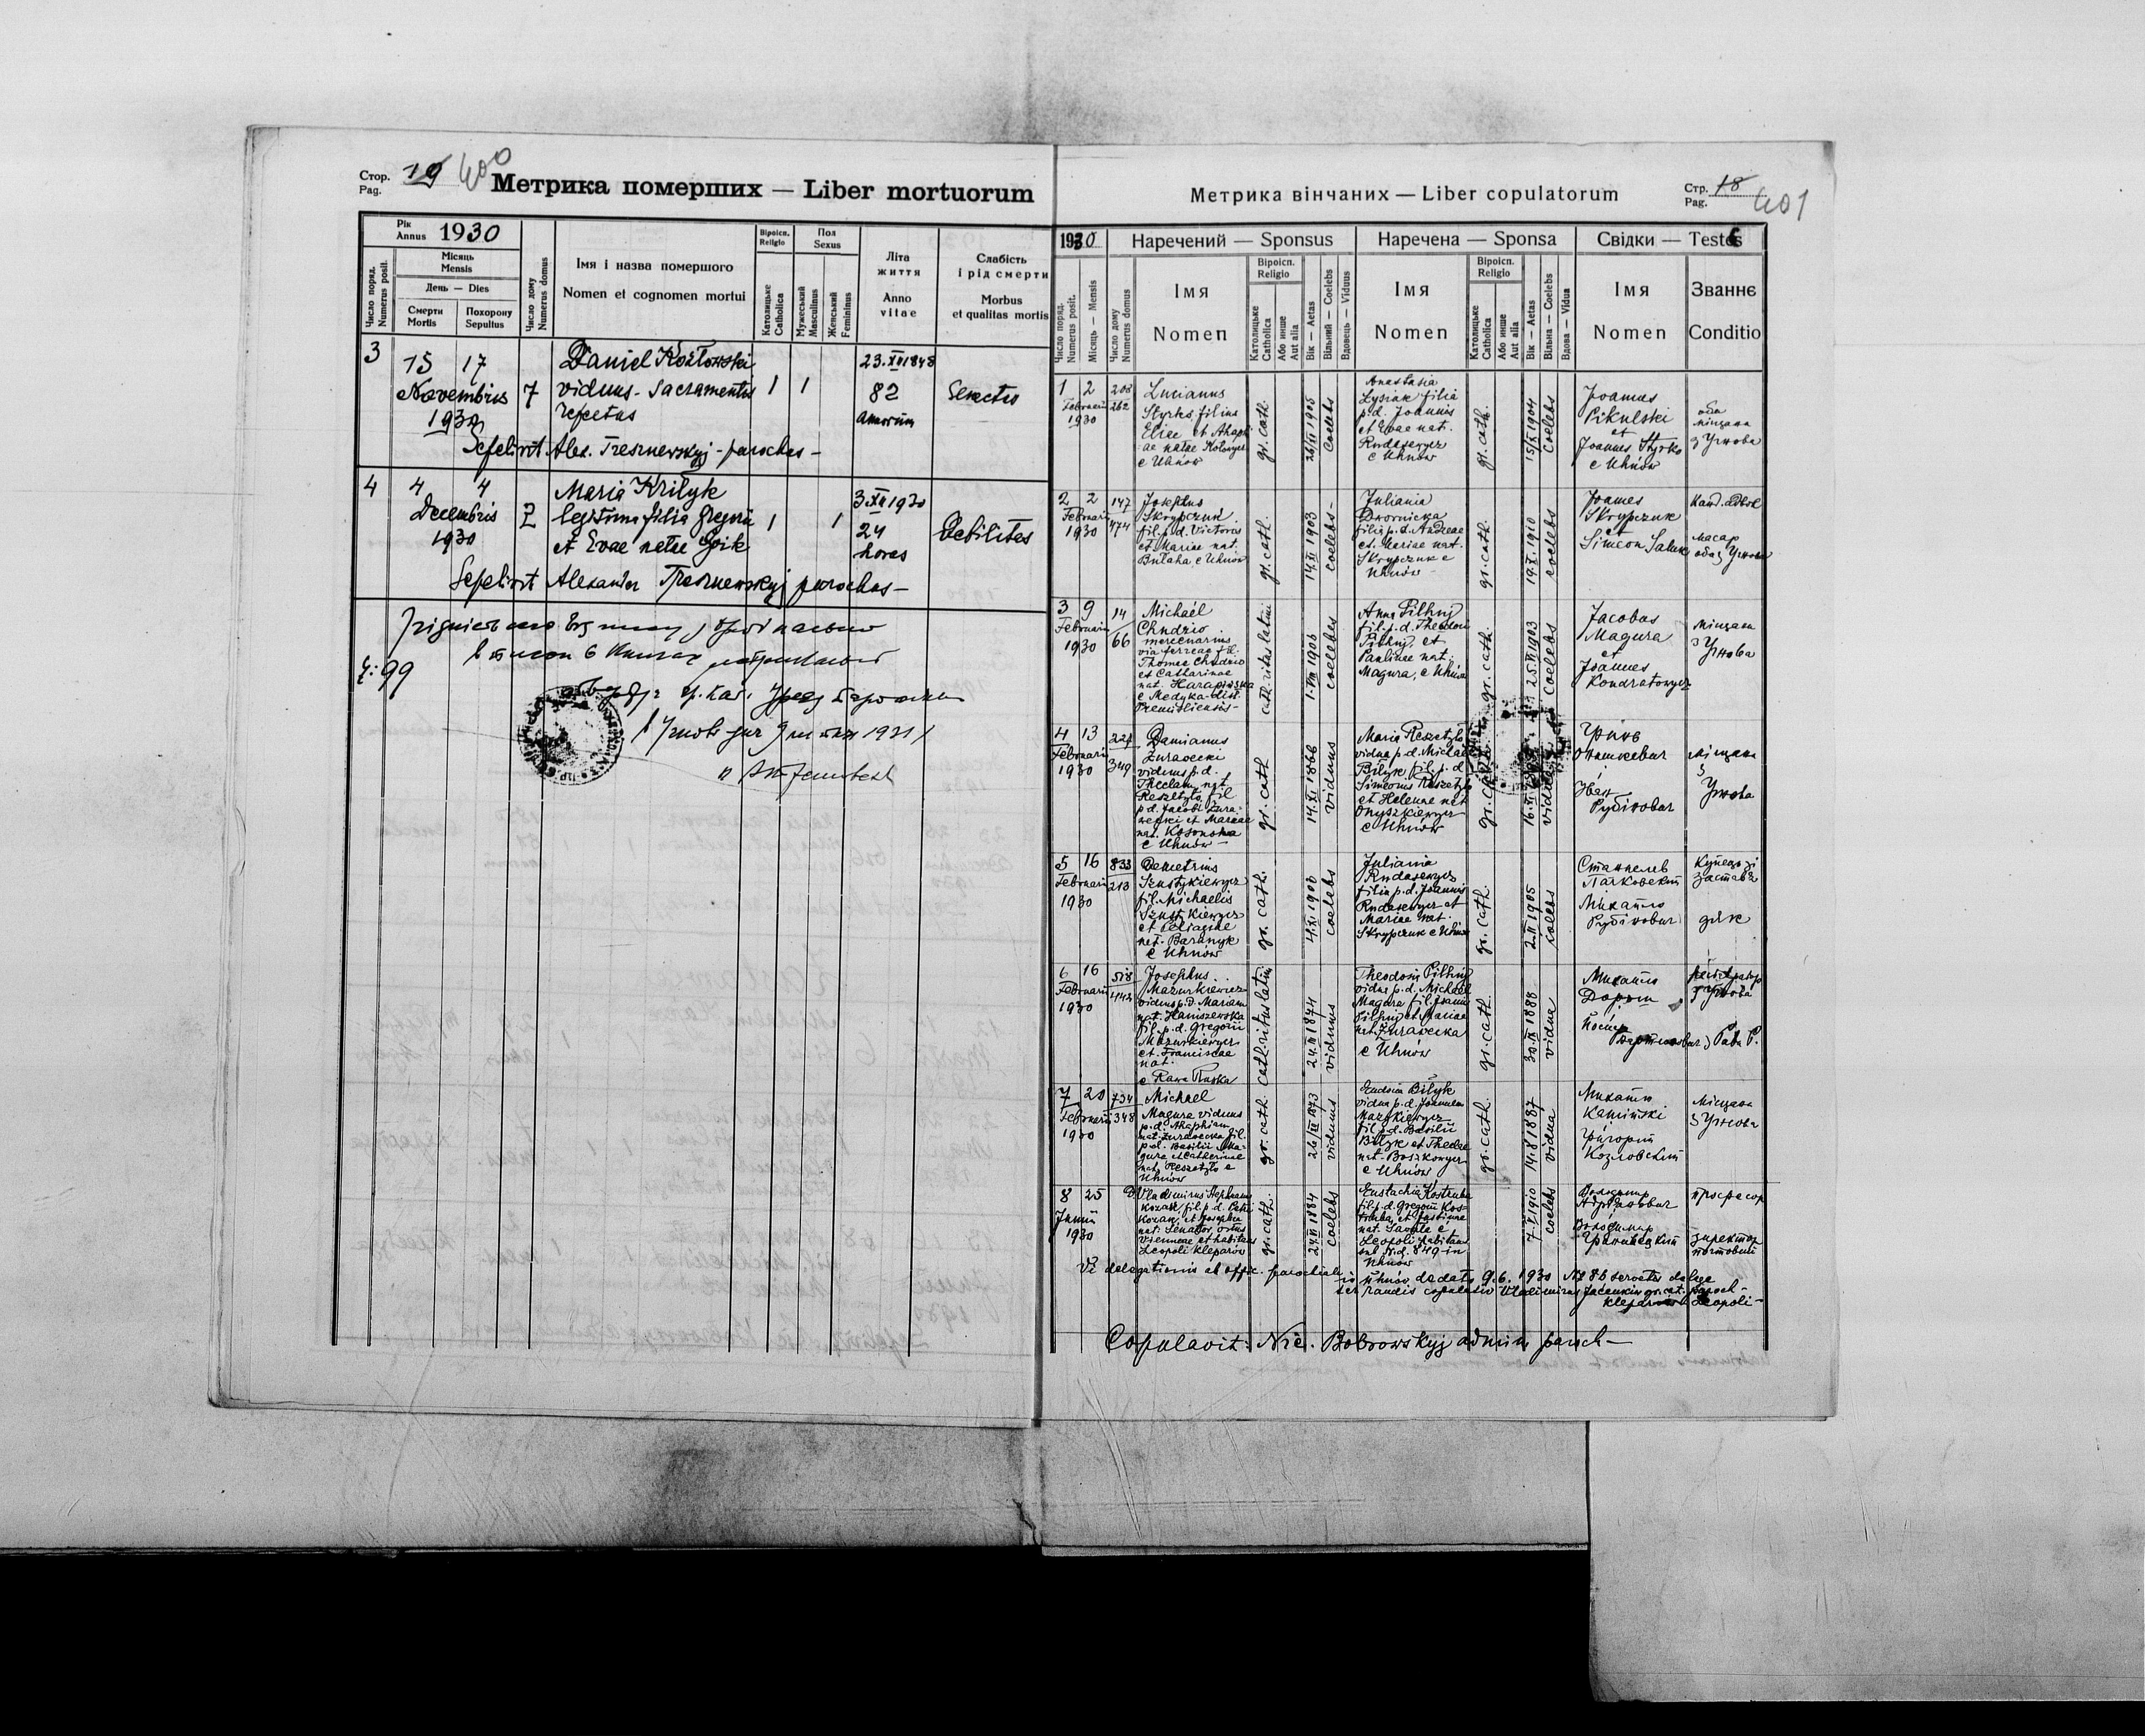 Стор. 19 400
Pag.
Метрика померших — Liber mortuorum
Рік
Annus 1930
Число поряд.
Numerus posit.
Місяць
Mensis
День — Dies
Смерти
Mortis
Похорону
Sepultus
Число дому
Numerus domus
Імя і назва помершого
Nomen et cognomen mortui
Віроісп.
Religio
Католицьке
Catholica
Пол
Sexus
Мужеський
Masculinus
Женський
Femininus
Літа
життя
Anno
vitae
Слабість
і рід смерти
Morbus
et qualitas mortis
3
15 17
Novembris
1930
7
Daniel Kozłowski
viduus - Sacramentis
refectus
1 1
23.XII 1848
82
annorum
Senectus
Sepelivit Alex. Tresznewskyj - parochus -
4
4 4
Decembris
1930
Maria Krilyk
legitima filia Gregorii
et Evae natae Goik
1 1
3.XII 1930
24
hores
Debilitas
Sepelivit Alexander Tresznewskyj parochus -
Ч: 99
Метрика вінчаних — Liber copulatorum
Стр. 18
Pag. 401
1930
Наречений — Sponsus
Наречена — Sponsa
Свідки — Testes
Число поряд.
Numerus posit.
Місяць — Mensis
Число дому
Numerus domus
Імя
Nomen
Віроісп.
Religio
Католицьке
Catholica
Або инше
Aut alia
Вік — Aetas
Вільний — Coelebs
Вдовець — Viduus
Імя
Nomen
Віроісп.
Religio
Католицьке
Catholica
Або инше
Aut alia
Вік — Aetas
Вільна — Coelebs
Вдова — Vidua
Імя
Nomen
Званнє
Conditio
1 2
Februarii
1930
208
262
Lucianus
Styrko filius
Eliae et Agaphi
ae natae Kolomyec
e Uhnów
gr. cath.
26/II 1905
Coelebs
Anastasia
Łysiak filia
p.d. Joannis
et Evae nat.
Rudasewycz
e Uhnów
gr. cath.
15/IX 1904
Coelebs
Joannes
Pikulski
et
Joannes Styrko
e Uhnów
оба
міщане
з Угнова
2 2
Februarii
1930
147
474
Josephus
Skrypczuk
fil. p.d. Victoris
et Mariae nat.
Bułaha e Uhnów
gr. cath.
14.XI 1903
coelebs -
Juliania
Dwornicka
filia p.d. Andreae
et Mariae nat.
Skrypczuk e
Uhnów
gr. cath.
19.X. 1910
coelebs
Joannes
Skrypczuk
et
Simeon
Kand. adwok
масар
оба з Угнова
3 9
Februarii
1930
14
66
Michaël
Chudzio
mercenarius
via ferreae fil.
Thomae Chudzio
et Catharinae
nat.
e Medyka - dist.
Premisliensis -
cath. ritus latini
1.VIII 1906
coelebs
Anna Pilhuj
fil. p.d. Theodori
Pilhuj et
Paulinae nat.
Magura, e Uhnów
gr. cath.
25.VI 1903
Coelebs
Jacobus
Magura
et
Joannes
Kondratowycz
міщане
з Угнова
4 13
Februarii
1930
227
349
Damianus
Żurawecki
viduus p.d.
Theclam nat.
Reszetyło, fil
p.d. Jacobi Żura-
wecki et Mariae
nat. Kosonska
e Uhnów -
gr. cath
14.XI 1866
viduus
Maria Reszetyło
vidua p.d. Michael
Biłyk, fil. p.d
Simeonis Reszetyło
et Helenae nat
Onyszkiewycz
e Uhnów
vidua
Гринь
Онишкевич
і
Іван
Рубінович
міщане
з
Угнова
5 16
Februarii
1930
833
213
Demetrius
Szustykiewycz
fil. Michaelis
Szustykiewycz
et Pelagiae
nat. Baranyk
e Uhnów
gr. cath.
4.XI 1906
coelebs
Juliania
Rudasewycz
filia p.d. Joannis
Rudasewycz et
Mariae nat.
Skrypczuk e Uhnów
gr. cath.
2.II 1905
coelebs
Михайло
Рубінович
Купець зі
застави
дяк
6 16
Februarii
1930
518
442
Josephus
Mazurkiewicz
viduus p.d. Mariam
nat. Haniszewska
fil. p.d. Gregorii
Mazurkiewycz
et Franciscae
nat.
e Rawa Ruska
cath. ritus latini
24.III 1874
viduus
Theodosia Pilhuj
vidua p.d. Michaël
Magura fil. Joannis
Pilhuj et Mariae
nat. Żurawecka
e Uhnów
gr. cath.
30.IX 1888
vidua
Михайло
Дорош
Йосиф
з Угнова
з Рави Р.
7 20
Februarii
1930
734
348
Michael
Magura viduus
p.d. Ahaphiam
nat. Żurawecka fil.
p.d. Basilii Ma-
gura et Catherinae
nat. Reszetyło e
Uhnów
gr. cath.
viduus
Eudocia Biłyk
vidua p.d. Joannem
fil. p.d. Basilii
Biłyk et Theclae
nat. Boszkowycz
e Uhnów
gr. cath.
14.8 1887
vidua
Михайло
Kamiński
Григорій
Козловський
міщане
з Угнова
8 25
Junii
1930
Vladimirus Stephanus
Kozak, fil. p.d. Petri
Kozak, et Josepha
nat. Senator, ortus
Viennae et habitans
Leopoli Kleparów
gr. cath.
24.VI 1884
Coelebs
Eustachia Kostruba
fil. p.d. Gregorii Kos-
truba et Justinae
nat. Sawula e
Leopoli habitans
sub N.d. 849 in
Uhnów
7.V 1910
coelebs
Володимир
професор
директор
почтовий
Vi delegationis ab offic. parochialis in Uhnów de dato 9.6.1930 N 86 servatis de lege
ser vandis copulavit Vladimirus gr. cat. paroch -
Kleparów Leopoli -
Copulavit: Nic. Bobrowskyj admin paroch -